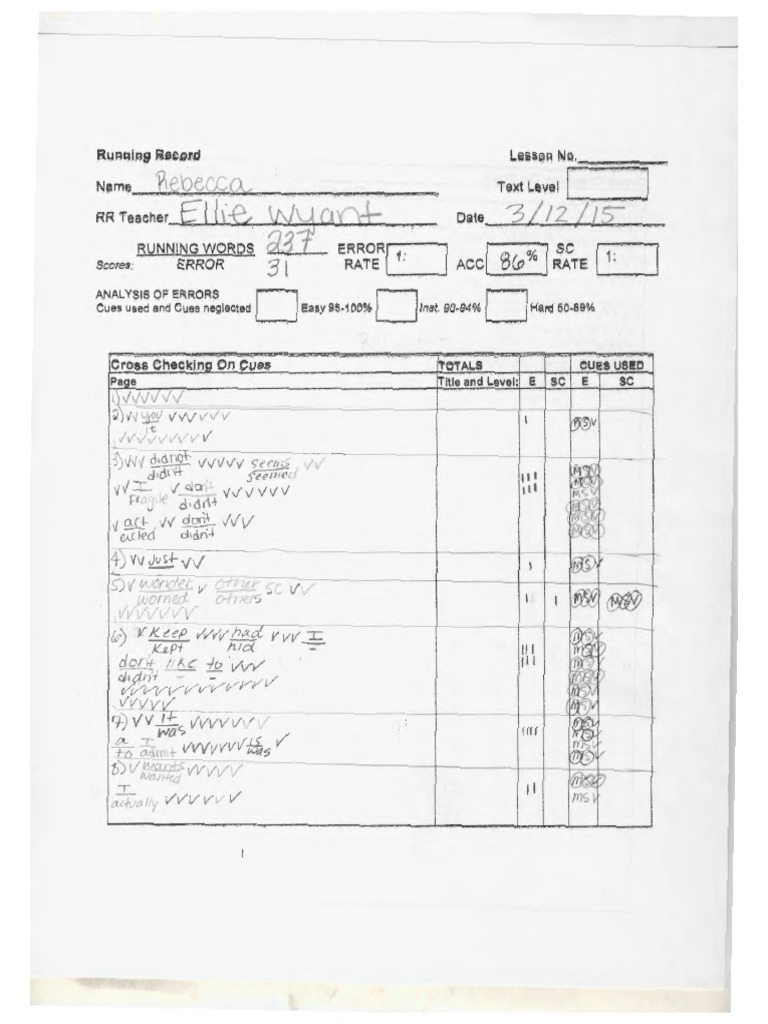 Running Record Lesson No.
Name Rebecca Text Level
RR Teacher Ellie Wyant Date 3/12/15
RUNNING WORDS 237 ERROR 1: ACC 86% SC 1:
Scores: ERROR 31 RATE RATE
ANALYSIS OF ERRORS
Cues used and Cues neglected Easy 95-100% Inst. 90-94% Hard 50-89%
Cross Checking On Cues TOTALS CUES USED
Page Title and Level: E SC E SC
1) ✓✓✓✓✓✓
2) ✓✓ you ✓✓✓✓✓✓ I MSV
It
✓✓✓✓✓✓✓✓✓
3) ✓✓✓ didnot ✓✓✓✓✓ seems ✓✓ MSV
didn't seemed III MSV
✓✓ I ✓ don't ✓✓✓✓✓✓ III MSV
Fragile didn't MSV
✓ act ✓✓ don't ✓✓✓ MSV
acted didn't MSV
4) ✓✓ just ✓✓ I MSV
5) ✓ wonder ✓ other SC ✓✓ I I MSV MSV
worried others
✓✓✓✓✓✓✓
6) ✓ Keep ✓✓✓✓ had ✓✓✓ I MSV
kept hid – III MSV
don't like to ✓✓✓ III MSV
didn't – – MSV
✓✓✓✓✓✓✓✓✓✓✓ MSV
✓✓✓✓✓ MSV
7) ✓✓ It ✓✓✓✓✓✓✓ MSV
was IIII MSV
a I ✓✓✓✓✓✓✓ is ✓ MSV
to admit was MSV
8) ✓ wants ✓✓✓✓✓
wanted MSV
I II
actually ✓✓✓✓✓✓ MSV